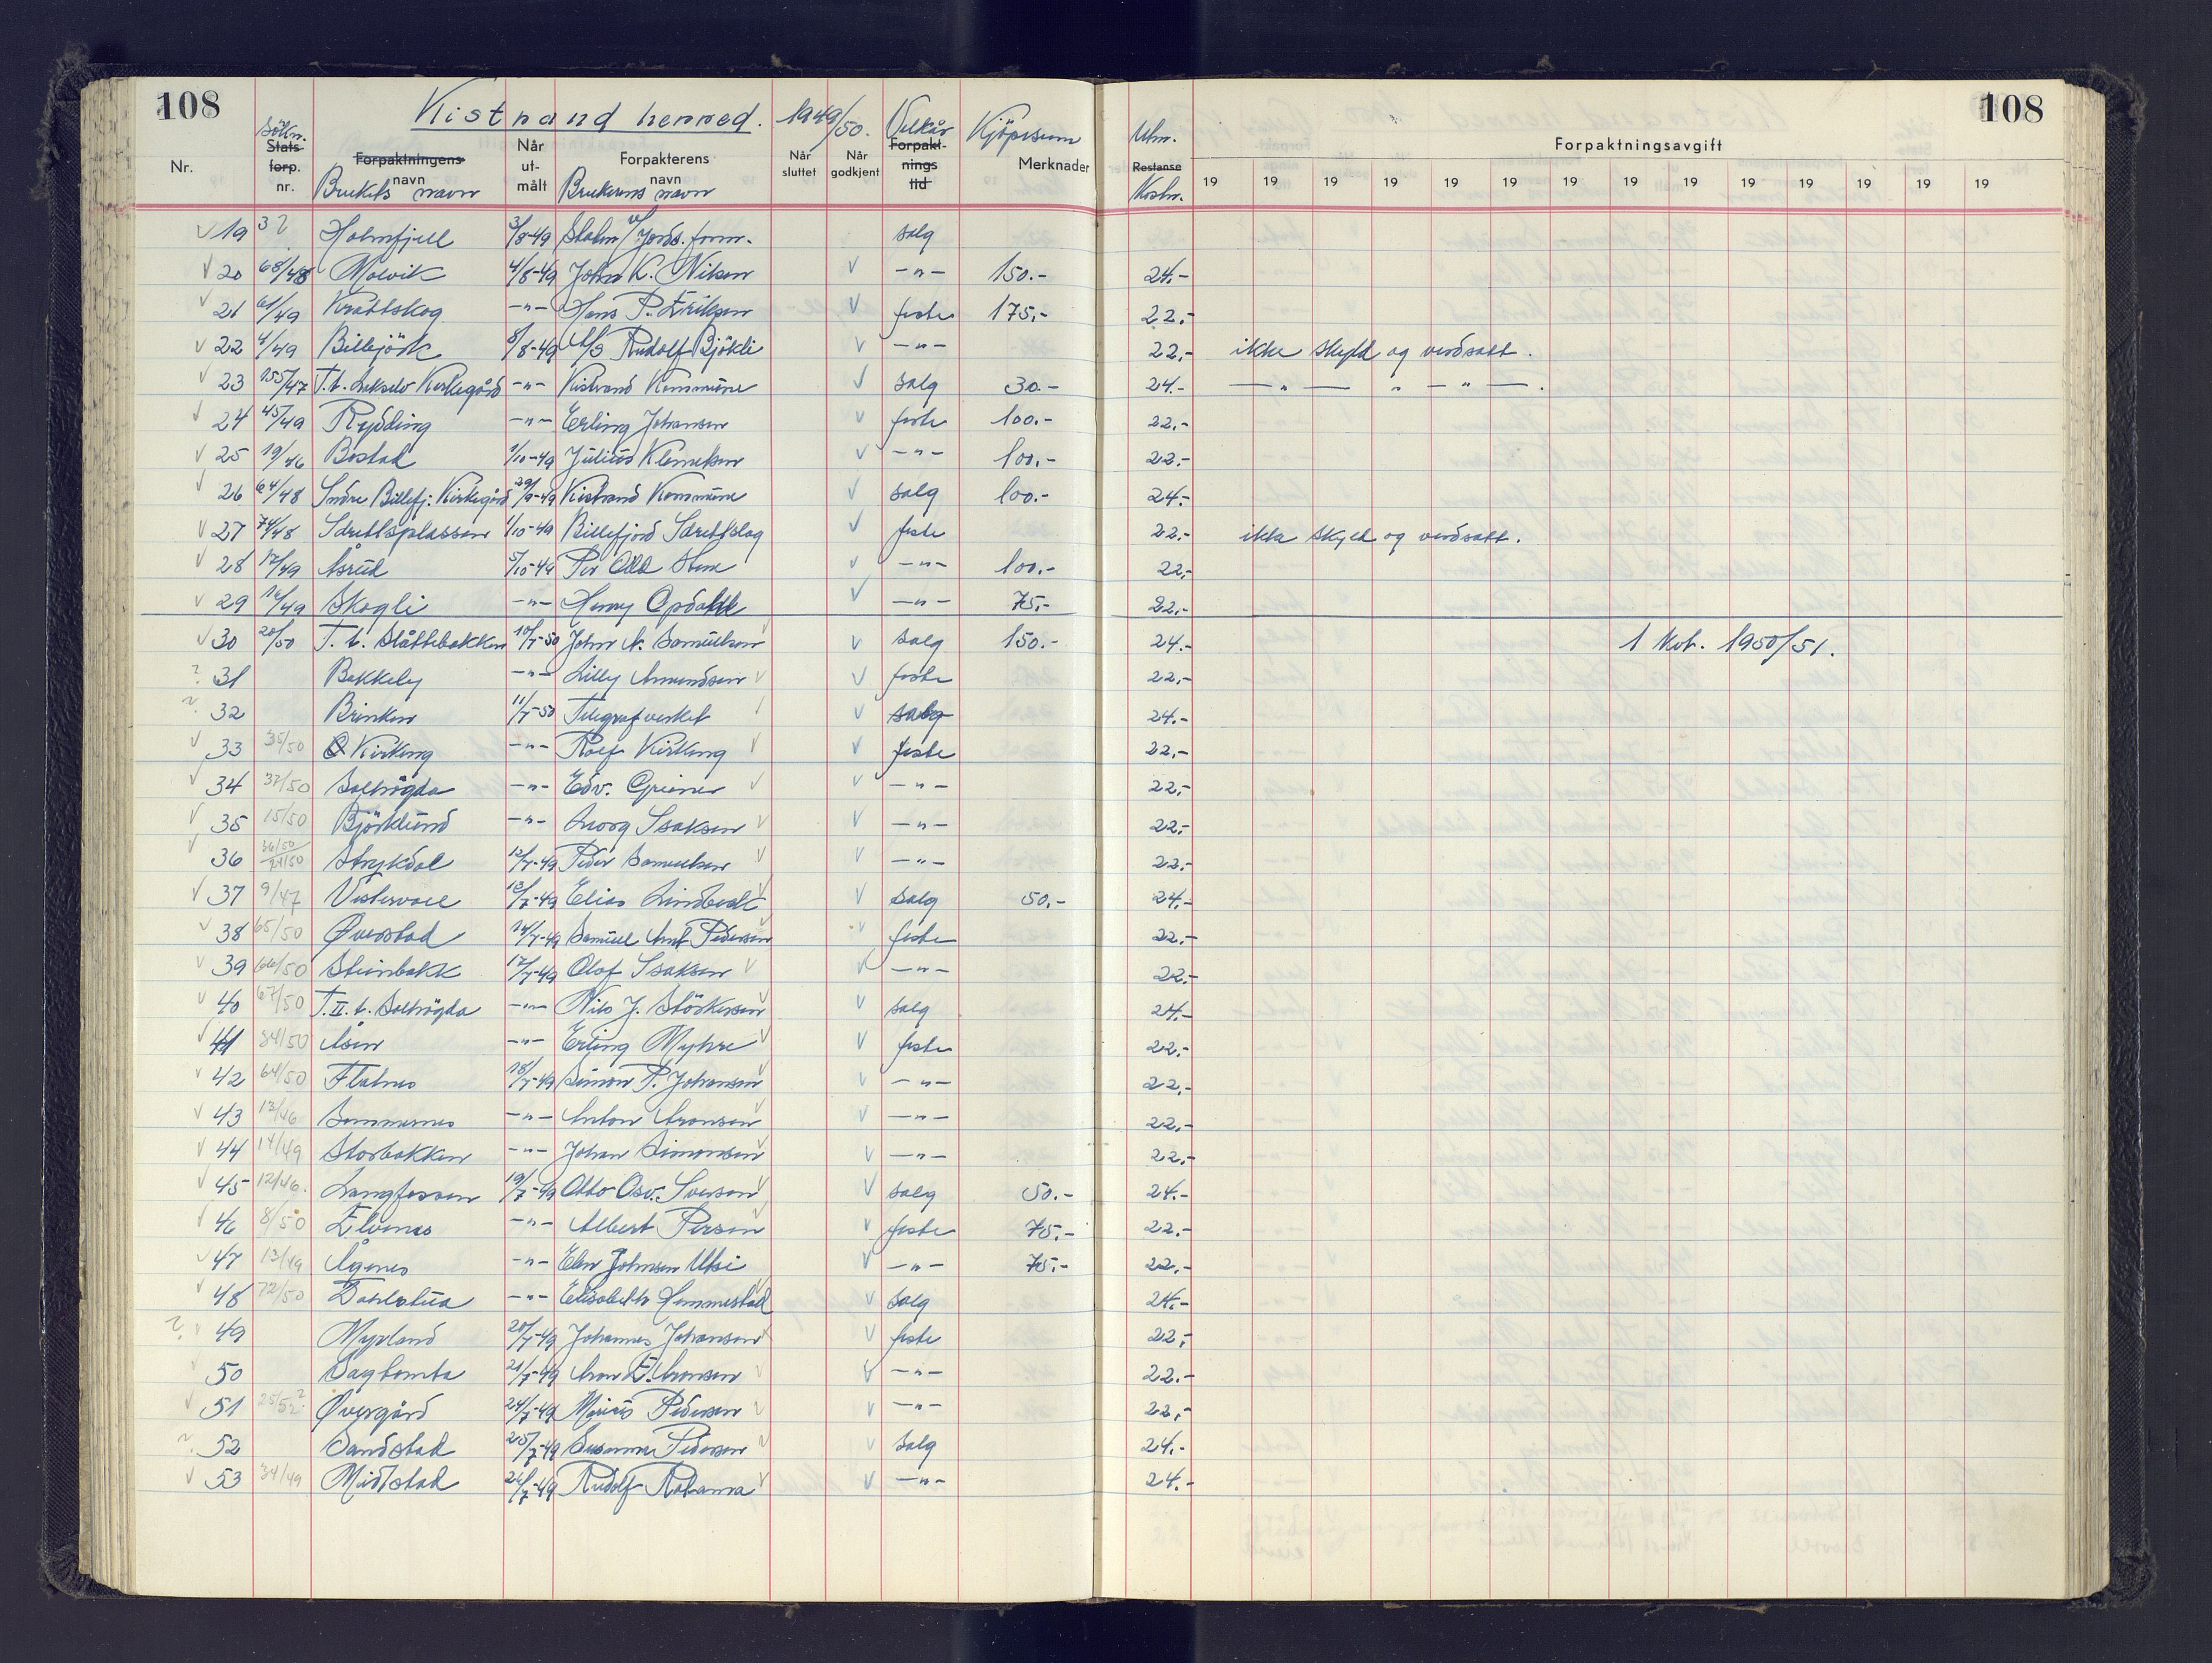 108 Kistrand herred. 1949/50. 108
Nr. Søkn. Stats-forp. nr. Forpaktningens navn Brukets navn Når ut-målt Forpakterens navn Brukerens navn Når sluttet Når godkjent Vilkår Forpakt-nings tid Kjöpesum Merknader Utm. Restanse Kostn. Forpaktningsavgift
19 19 19 19 19 19 19 19 19 19 19 19 19 19
19 3? Holmfjell 3/8-49 Staten v/ Jords. form. salg
20 68/48 Molvik 4/8-49 John K. Nilsen v -"- 150.- 24.-
21 61/49 Krattskog -"- Hans P. Eriksen v feste 175,- 22,-
22 4/49 Billejörk 8/8-49 A/S Rudolf Bjökli v -"- 22,- ikke skyld og verdsatt.
23 155/47 T.t. Lakselv Kirkegård -"- Kistrand Kommune v salg 30.- 24.- -"- " -"-.
24 45/49 Rydding -"- Erling Johansen v feste 100.- 22.-
25 19/46 Bostad 1/10-49 Julius Klemetsen v -"- 100,- 22.-
26 64/48 Indre Billefj. Kirkegård 29/9-49 Kistrand Kommune v salg 100.- 24.-
27 74/48 Idrettsplassen 1/10-49 Billefjord Idrettslag v feste 22.- ikke skyld og verdsatt.
28 17/49 Åsrud 5/10-49 Per Odd v -"- 100,- 22,-
29 16/49 Skogli -"- Henry Opdahl v -"- 75,- 22.-
30 20/50 T. t. Slåttebakken 10/7-50 John N. Samuelsen v salg 150.- 24.- 1 Kvt. 1950/51.
? 31 Bakkely -"- Lilly Amundsen v feste 22,-
? 32 Brinken 11/7-50 Telegrafverket v salg 24.-
33 35/50 Kirkeng -"- Rolf Kirkeng v feste 22,-
34 37/50 Solhögda -"- Edv. Greiner v -"- 22,-
35 15/50 Björklund -"- Georg Isaksen v -"- 22,-
36 36/50 24/50 Strykdal 12/7-49 Peder Samuelsen v -"- 22.-
37 9/47 Vestervoll 12/7-49 Elias Lindbædk v salg 50.- 24.-
38 65/50 Øverstad 14/7-49 Samuel Ant. Pedersen v feste 22.-
39 66/50 Steinbakk 17/7-49 Olaf Isaksen v -"- 22.-
40 67/50 T. II. t. Solhögda -"- Nils J. Störkersen v salg 24.-
41 84/50 Åsen -"- Erling Myhre v feste 22.-
42 64/50 Flatnes 18/7-49 Simon P. Johansen v -"- 22,-
43 13/46 Sommernes -"- Anton Aronsen v -"- 22.-
44 14/49 Storbakken -"- Johan Simonsen v -"- 22.-
45 12/46. Langfossen 19/7-49 Otto Osv. Iversen v salg 50.- 24.-
46 8/50 Elvenes -"- Albert Persen v feste 75.- 22.-
47 13/49 Ågenes -"- Elen Johnsen Utsi v -"- 75.- 22.-
48 72/50 Dahlstua -"- Elisabeth Hemmestad salg 24.-
? 49 Myrland 20/7-49 Johannes Johansen v feste 22,-
50 Sagtomta 21/7-49 Aron E. Aronsen v -"- 22.-
51 25/52? Øvergård 24/7-49 Marius Pedersen v -"- 22,-
? 52 Sandstad 25/7-49 Susanna Pedersen v salg 24.-
53 34/49 Midtstad 26/7-49 Rudolf Ratama v -"- 24.-